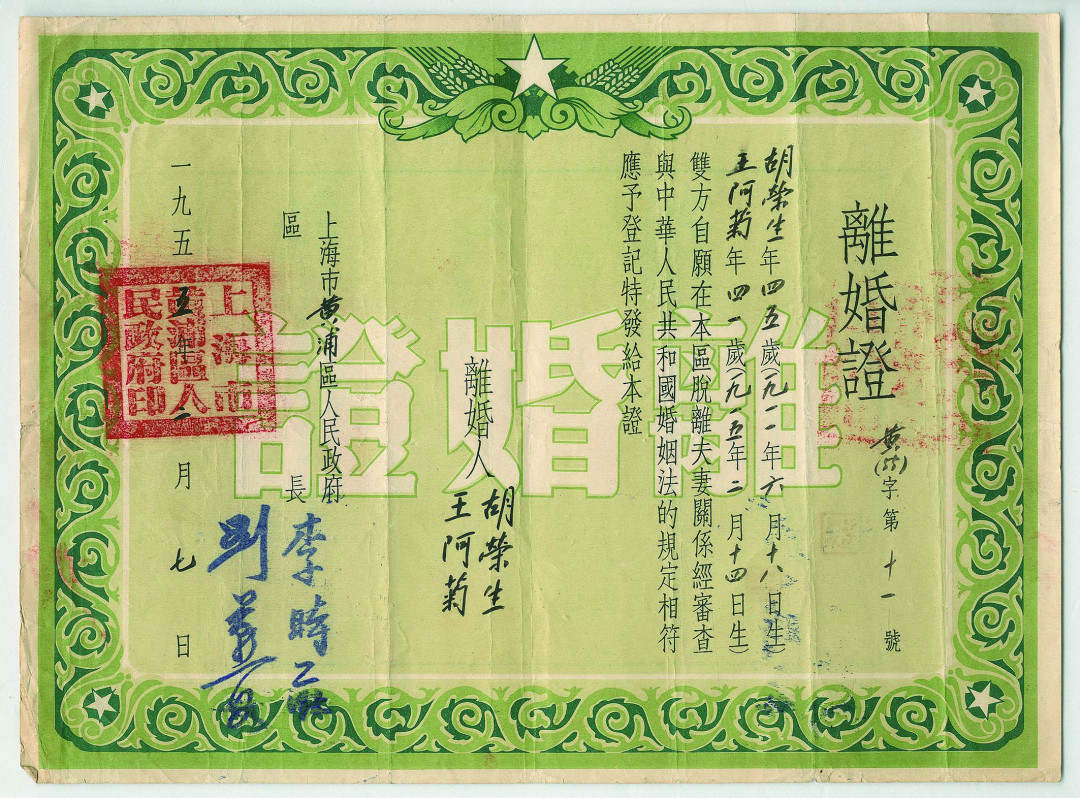 離婚證
黄(離)字第十一號
胡榮生年四五歲(一九一一年六月十八日生)
王阿菊年四一歲(一九一五年二月十四日生)
雙方自願在本區脫離夫妻關係經審查
與中華人民共和國婚姻法的規定相符
應予登記特發給本證
離婚證
離婚人
胡榮生
王阿菊
上海市黄浦區人民政府
區長
李時
一九五五年一月七日
上海市黄浦區人民政府印